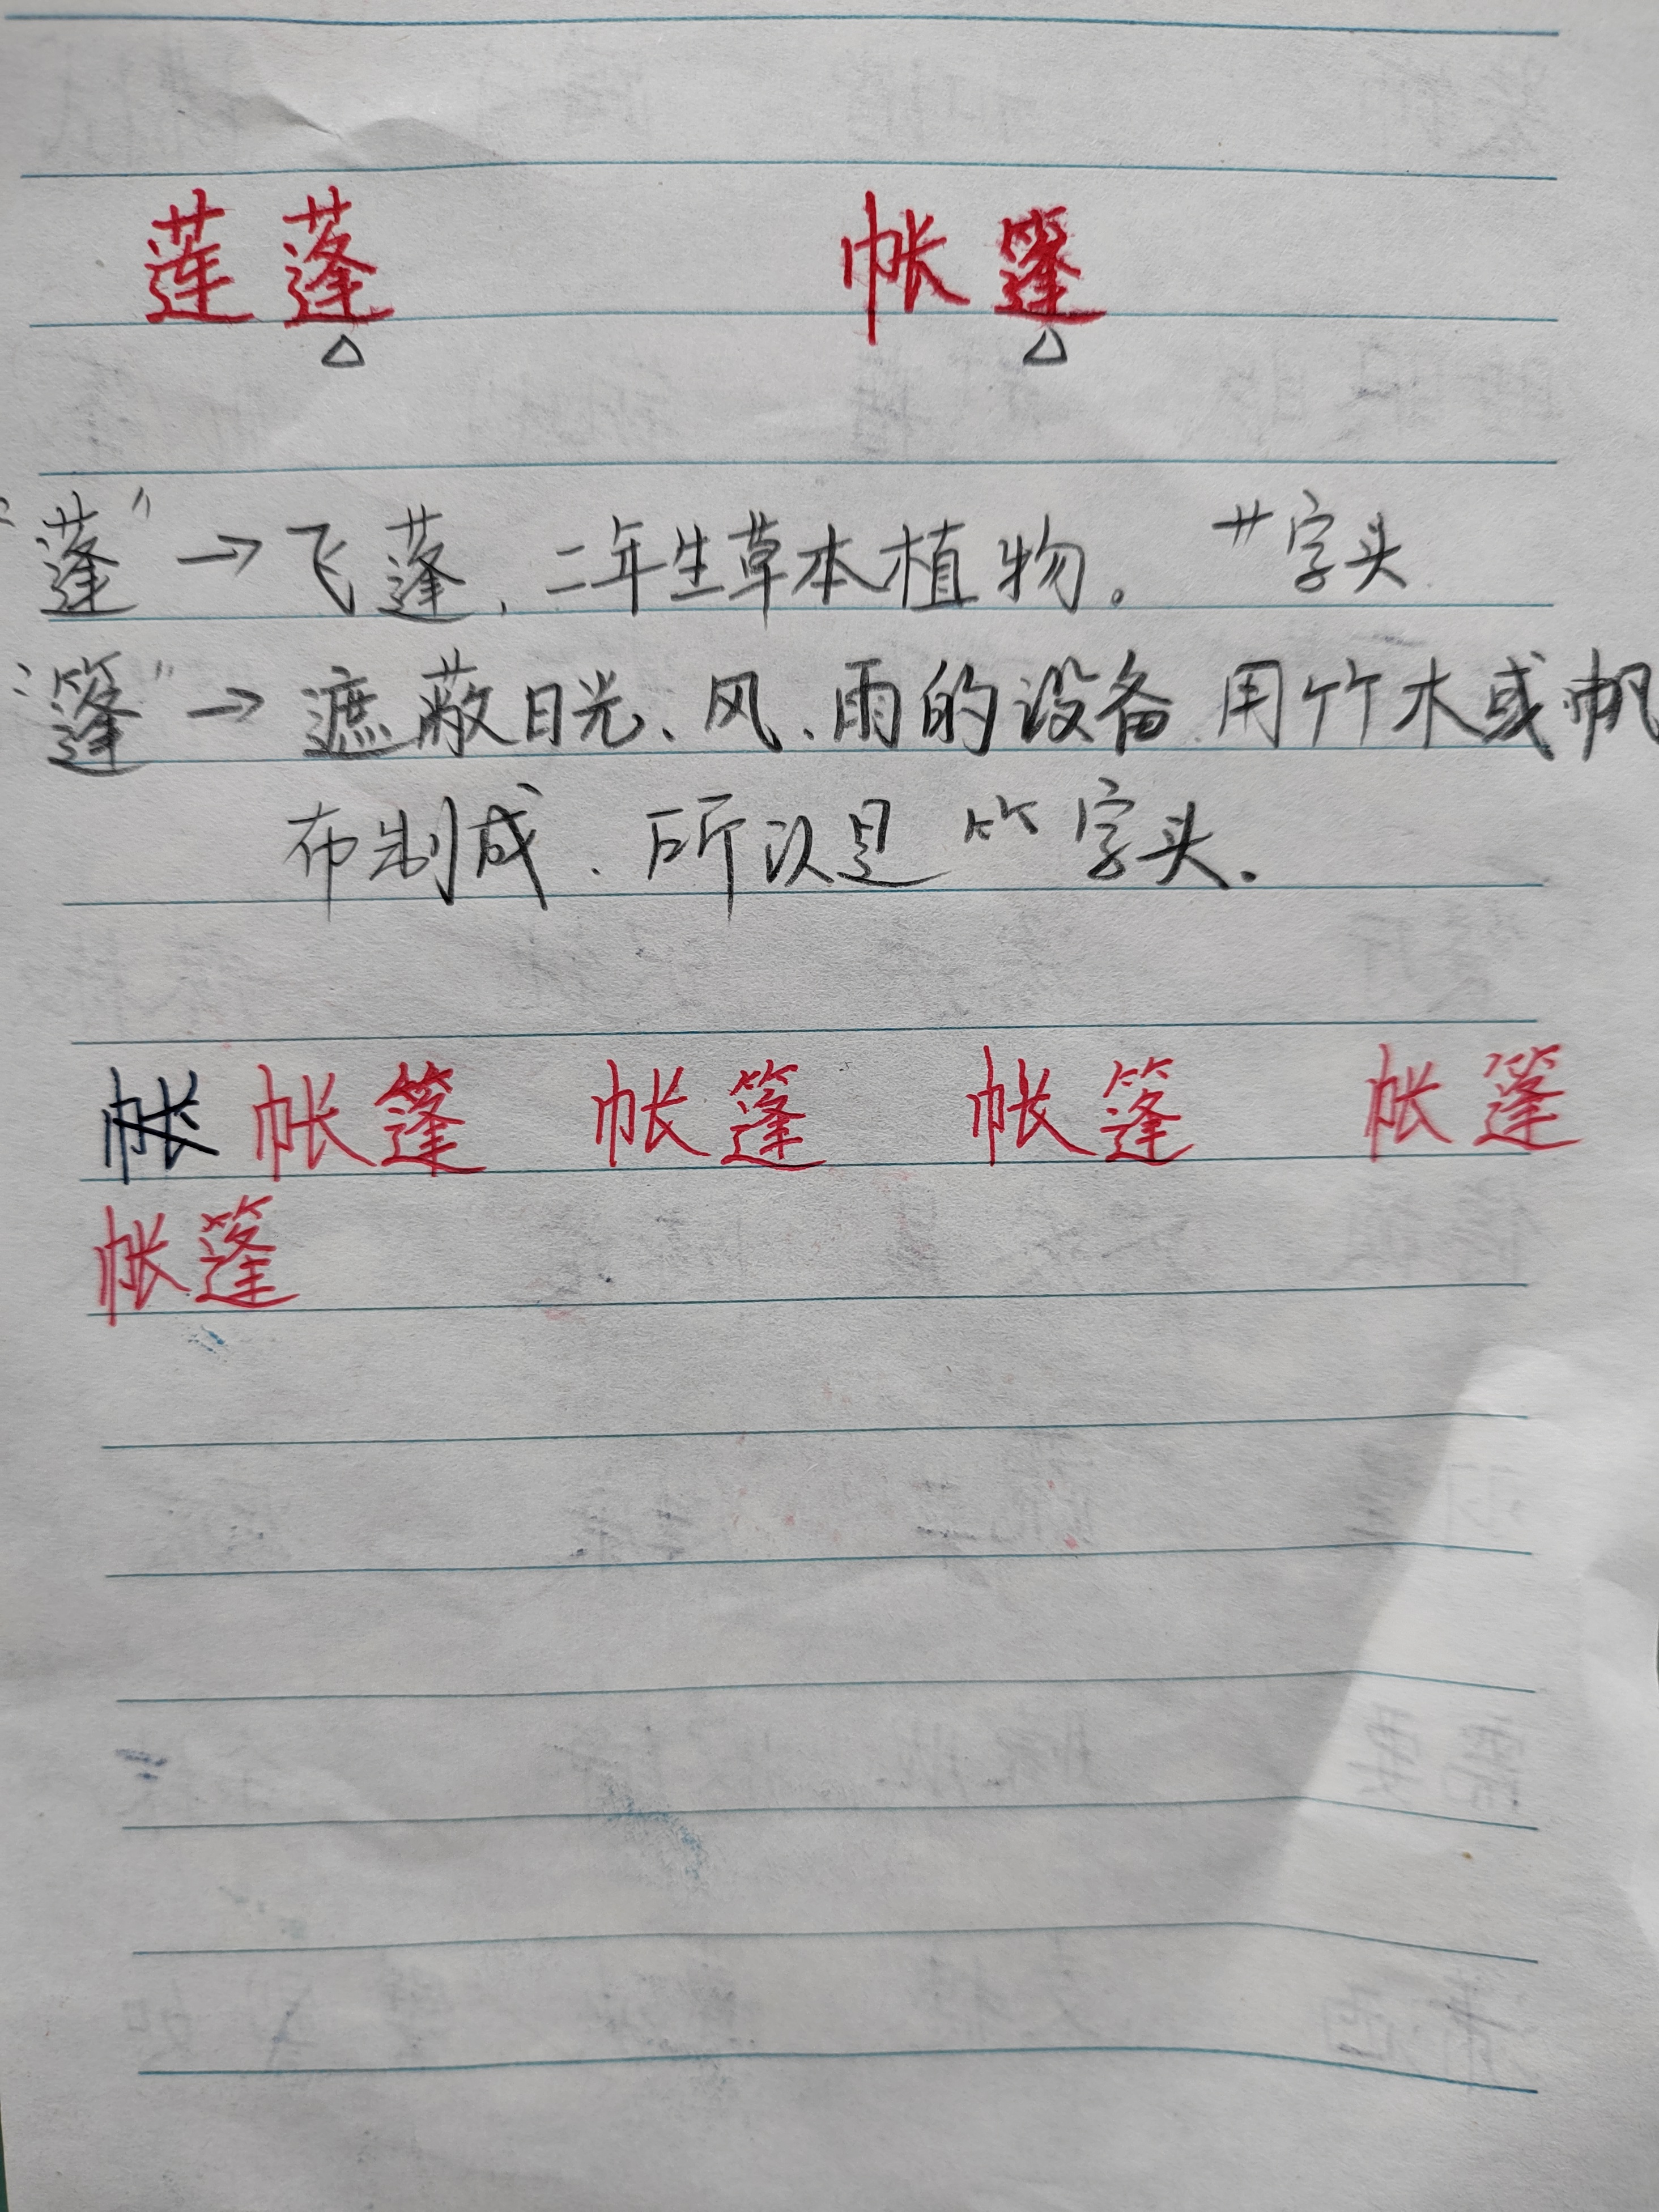 莲蓬 帐篷
△ △
“蓬”→飞蓬,二年生草本植物。 艹字头
“篷”→遮蔽日光、风、雨的设备,用竹木或帆
布制成,所以是⺮字头。
帐篷 帐篷 帐篷 帐篷
帐篷